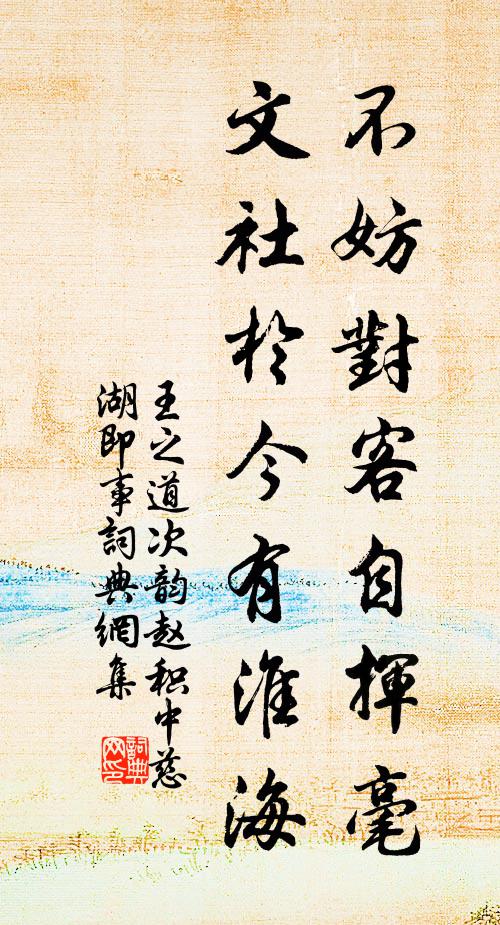 不妨對客自揮毫
文社於今有淮海
王之道次韵赵积中慈
湖即事詞典網集
詞典
网印